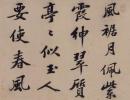 風裾月佩紫
霞紳翠質
亭亭似玉人
要使春風